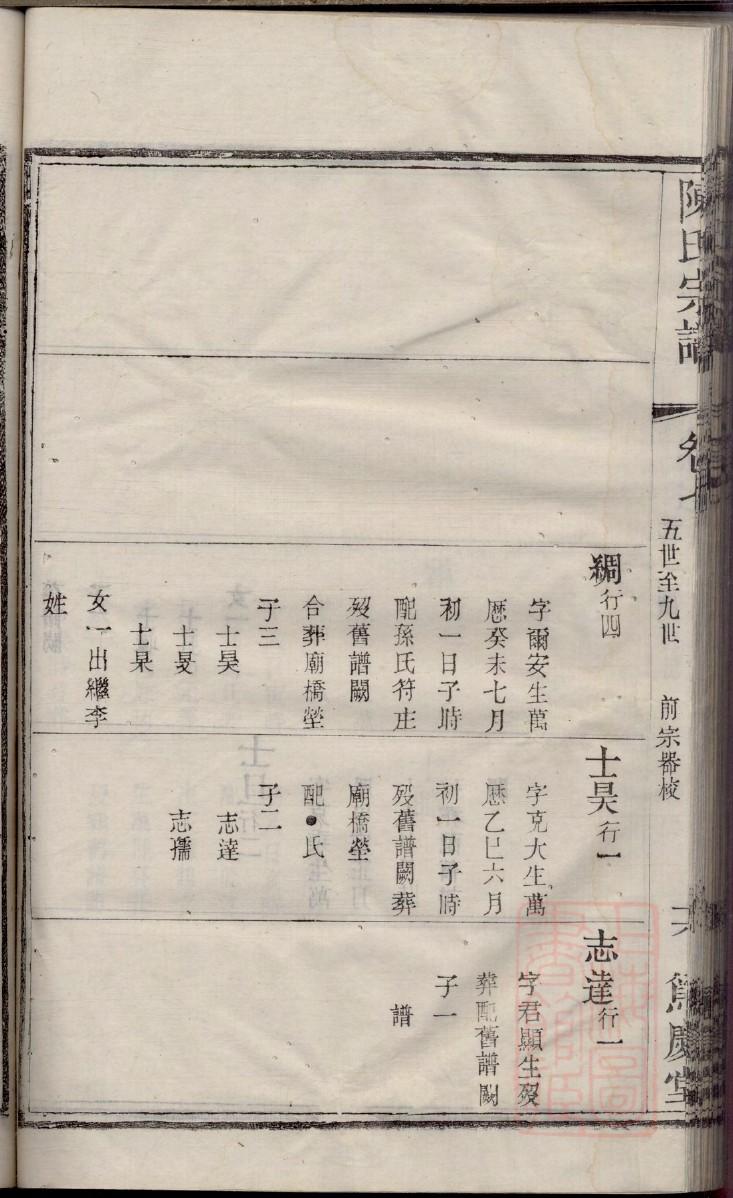 陳氏宗譜
卷七
五世至九世
前宗器校
篤慶堂
綢行四
字爾安生萬
歷癸未七月
初一日子時
配孫氏符庄
歿舊譜闕
合葬廟橋塋
子三
士昊
士旻
士杲
女一出繼李
姓
士昊行一
字克大生萬
歷乙巳六月
初一日子時
歿舊譜闕葬
廟橋塋
配●氏
子二
志達
志孺
志達行一
字君顯生歿
葬配舊譜闕
子一
譜